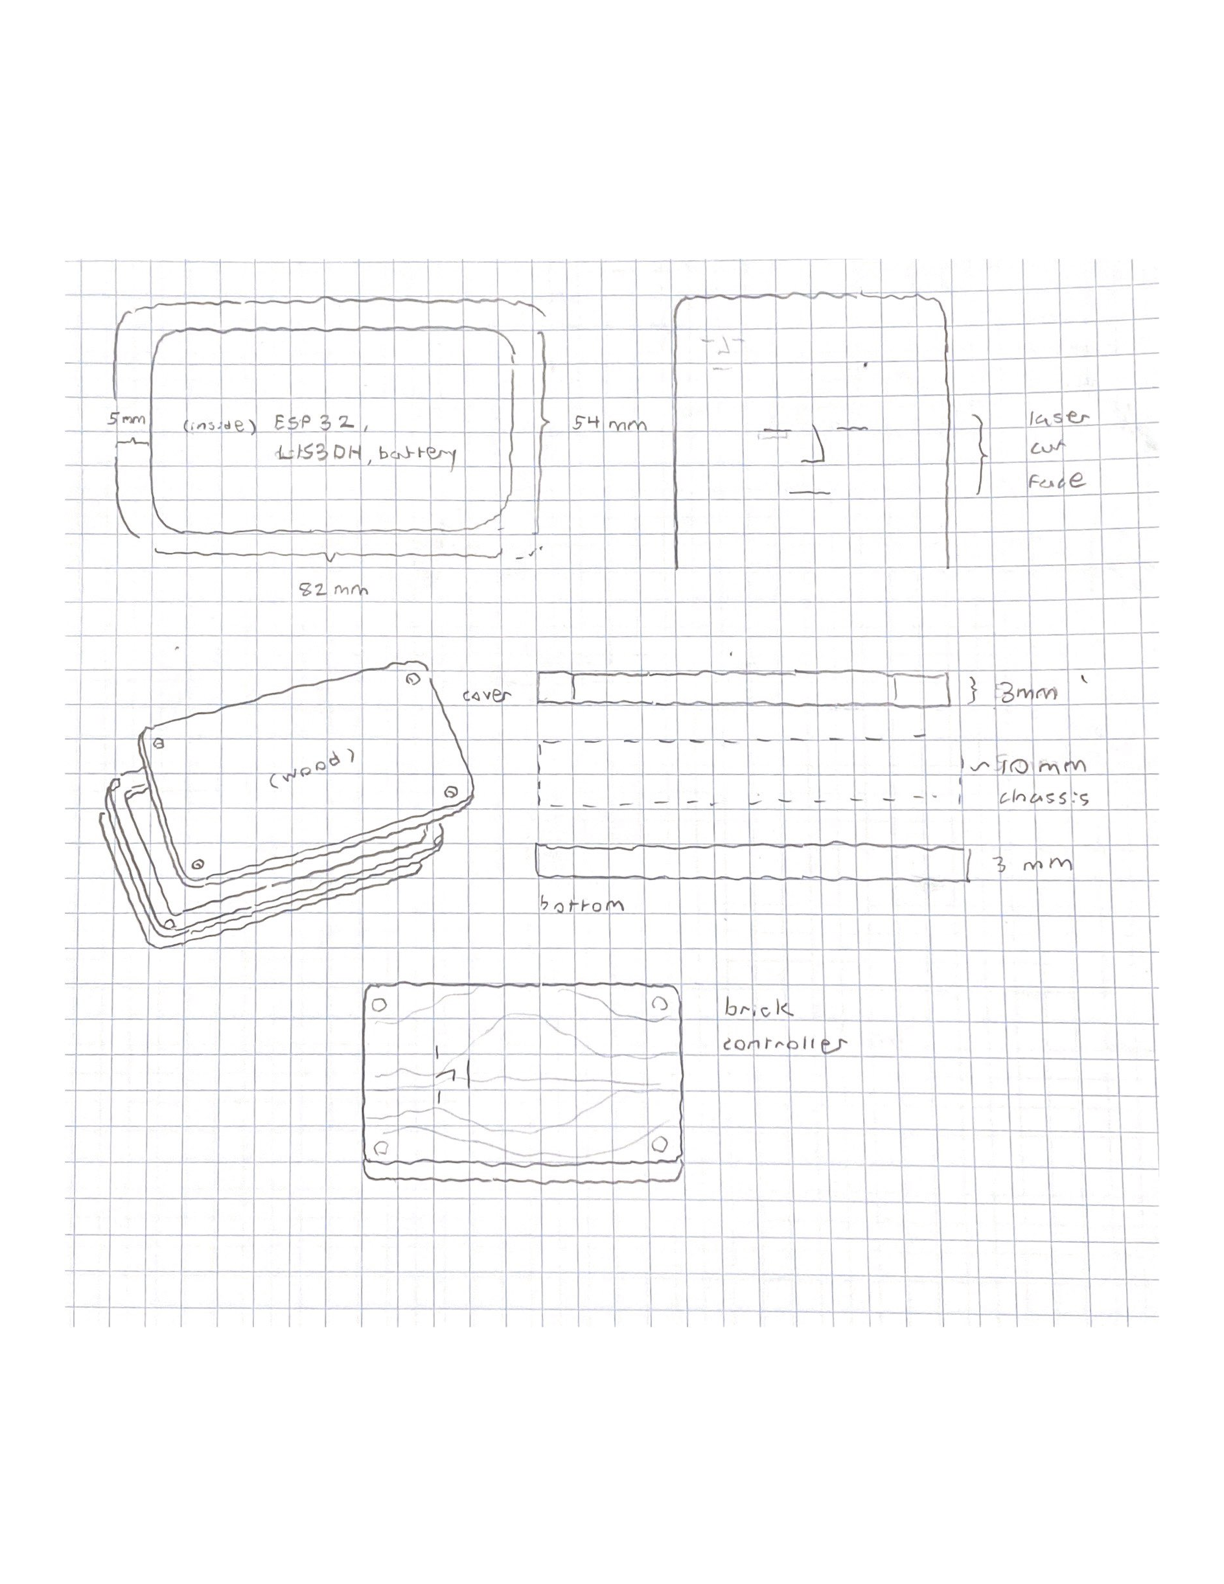 5mm
(inside) ESP 32,
LIS3DH, battery
54 mm
82 mm
laser
cut
face
(wood)
cover
3mm
~ 10 mm
chassis
3 mm
bottom
brick
controller